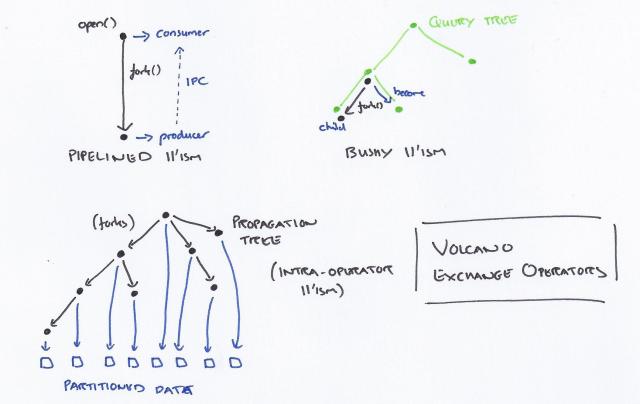 open()
consumer
fork()
IPC
producer
PIPELINED ||'ISM
QUERY TREE
become
fork()
child
BUSHY ||'ISM
(forks)
PROPAGATION
TREE
(INTRA-OPERATOR
||'ISM)
VOLCANO
EXCHANGE OPERATORS
PARTITIONED DATA